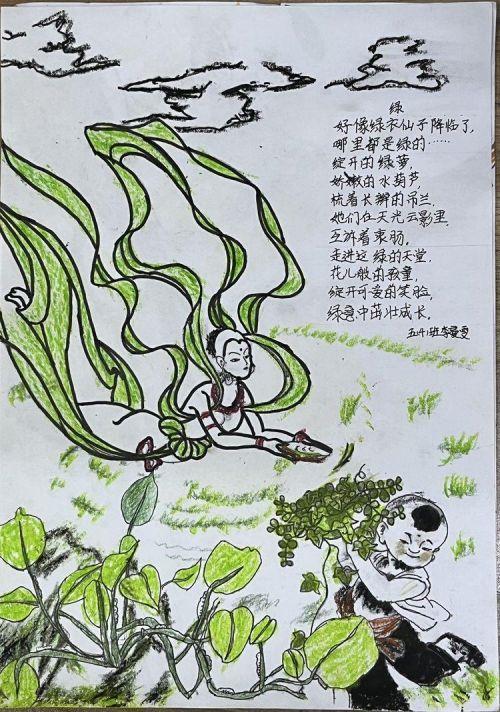 绿
好像绿衣仙子降临了,
哪里都是绿的……
绽开的绿萝,
娇嫩的水葫芦,
梳着长辫的吊兰.
她们在天光云影里.
互诉着衷肠,
走进这绿的天堂.
花儿般的孩童,
绽开可爱的笑脸,
绿意中茁壮成长.
五(4)班李曼